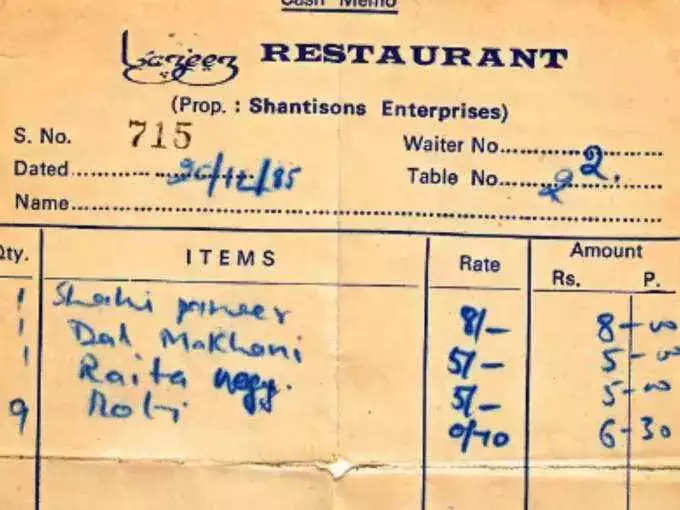 Cash Memo
Lazeez RESTAURANT
(Prop. : Shantisons Enterprises)
S. No. 715 Waiter No. 2.
Dated 20/12/85 Table No. 2
Name
Qty. ITEMS Rate Amount
Rs. P.
1 Shahi paneer 8/- 8-00
1 Dal Makhani 5/- 5-00
1 Raita 5/- 5-00
9 Roti 0/70 6-30